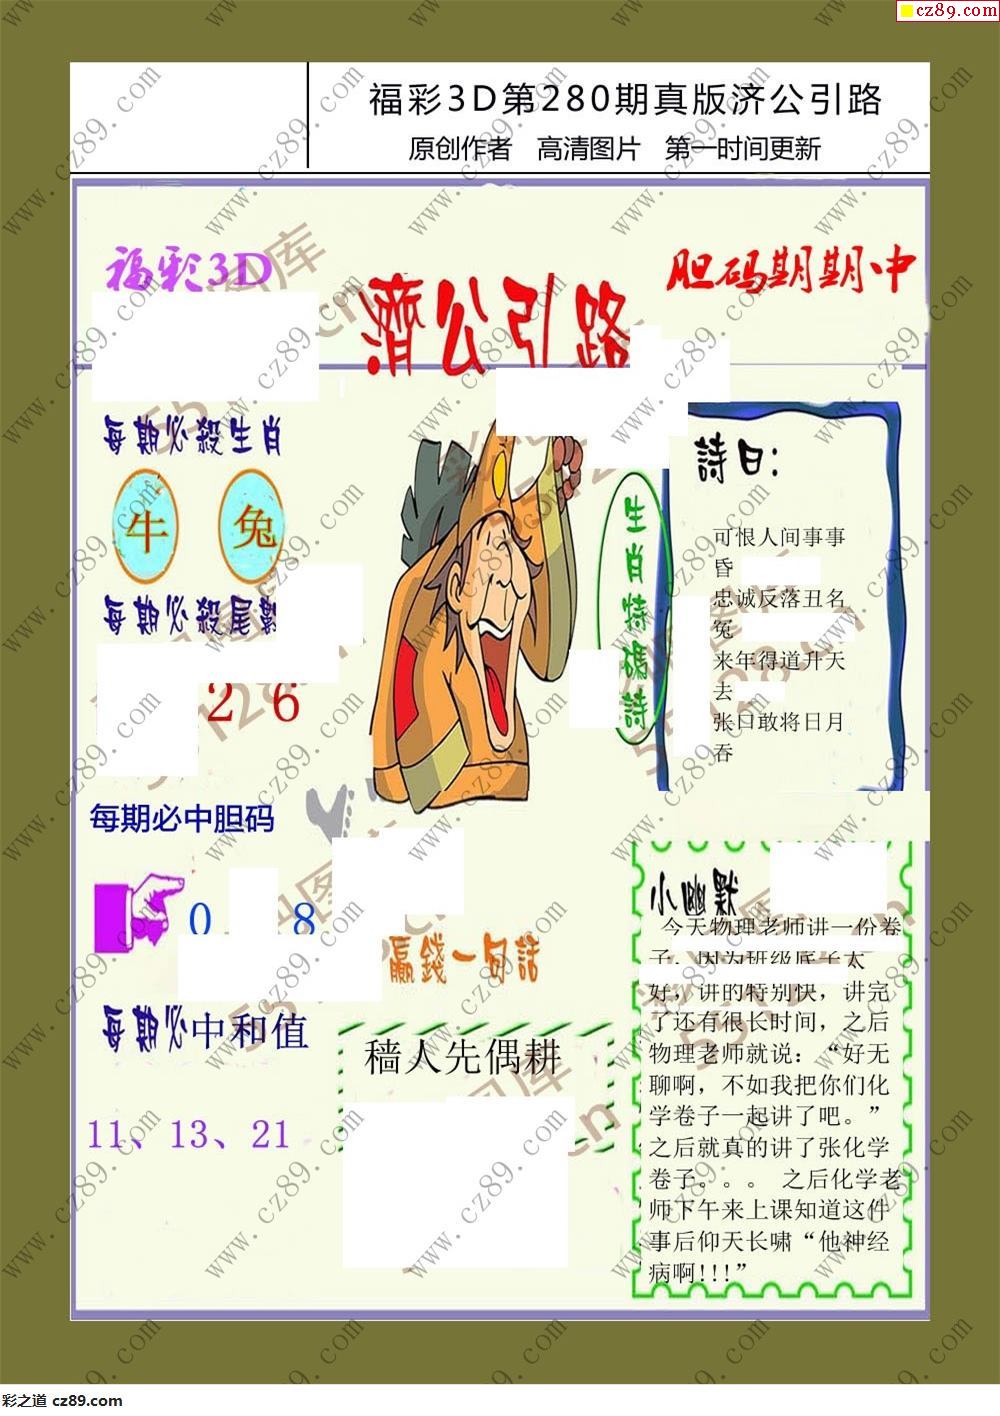 cz89.com
福彩3D第280期真版济公引路
原创作者 高清图片 第一时间更新
福彩3D
胆码期期中
濟公引路
每期必殺生肖
牛 兔
每期必殺尾數
2 6
每期必中胆码
0 8
每期必中和值
11、13、21
生肖特碼詩
詩曰：
可恨人间事事
昏
忠诚反落丑名
冤
来年得道升天
去
张口敢将日月
吞
贏錢一句話
穑人先偶耕
小幽默
今天物理老师讲一份卷
子，因为班级底子太
好，讲的特别快，讲完
了还有很长时间，之后
物理老师就说：“好无
聊啊，不如我把你们化
学卷子一起讲了吧。”
之后就真的讲了张化学
卷子。。。 之后化学老
师下午来上课知道这件
事后仰天长啸“他神经
病啊!!!”
彩之道 cz89.com
www.cz89.com